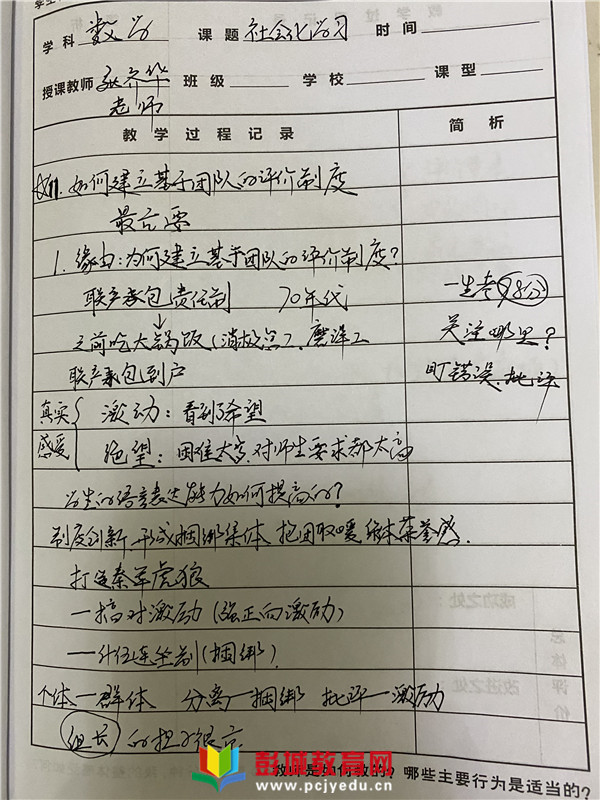 学科 数学 课题 社会化学习 时间
授课教师 张齐华老师 班级 学校 课型
教学过程记录 简析
如何建立基于团队的评价制度
最重要
1.缘由:为何建立基于团队的评价制度?
联产承包责任制 70年代 一生考98分
之前吃大锅饭(消极怠工、磨洋工 关注哪里?
联产承包到户 盯错误、批评
真实感受 激动:看到了希望
绝望:困难太高,对师生要求都太高
学生的语言表达能力如何提高的?
制度创新 形成捆绑集体 抱团取暖 集体荣誉感.
打造秦军虎狼
一搞对激励(强正向激励)
一什伍连坐制(捆绑)
个体一群体 分离一捆绑 批评一激励
组长 的担子很重
教师是如何教的?哪些主要行为是适当的?
彭城教育网
www.pcjyedu.cn
成功之处:
改进之处:
总体评价